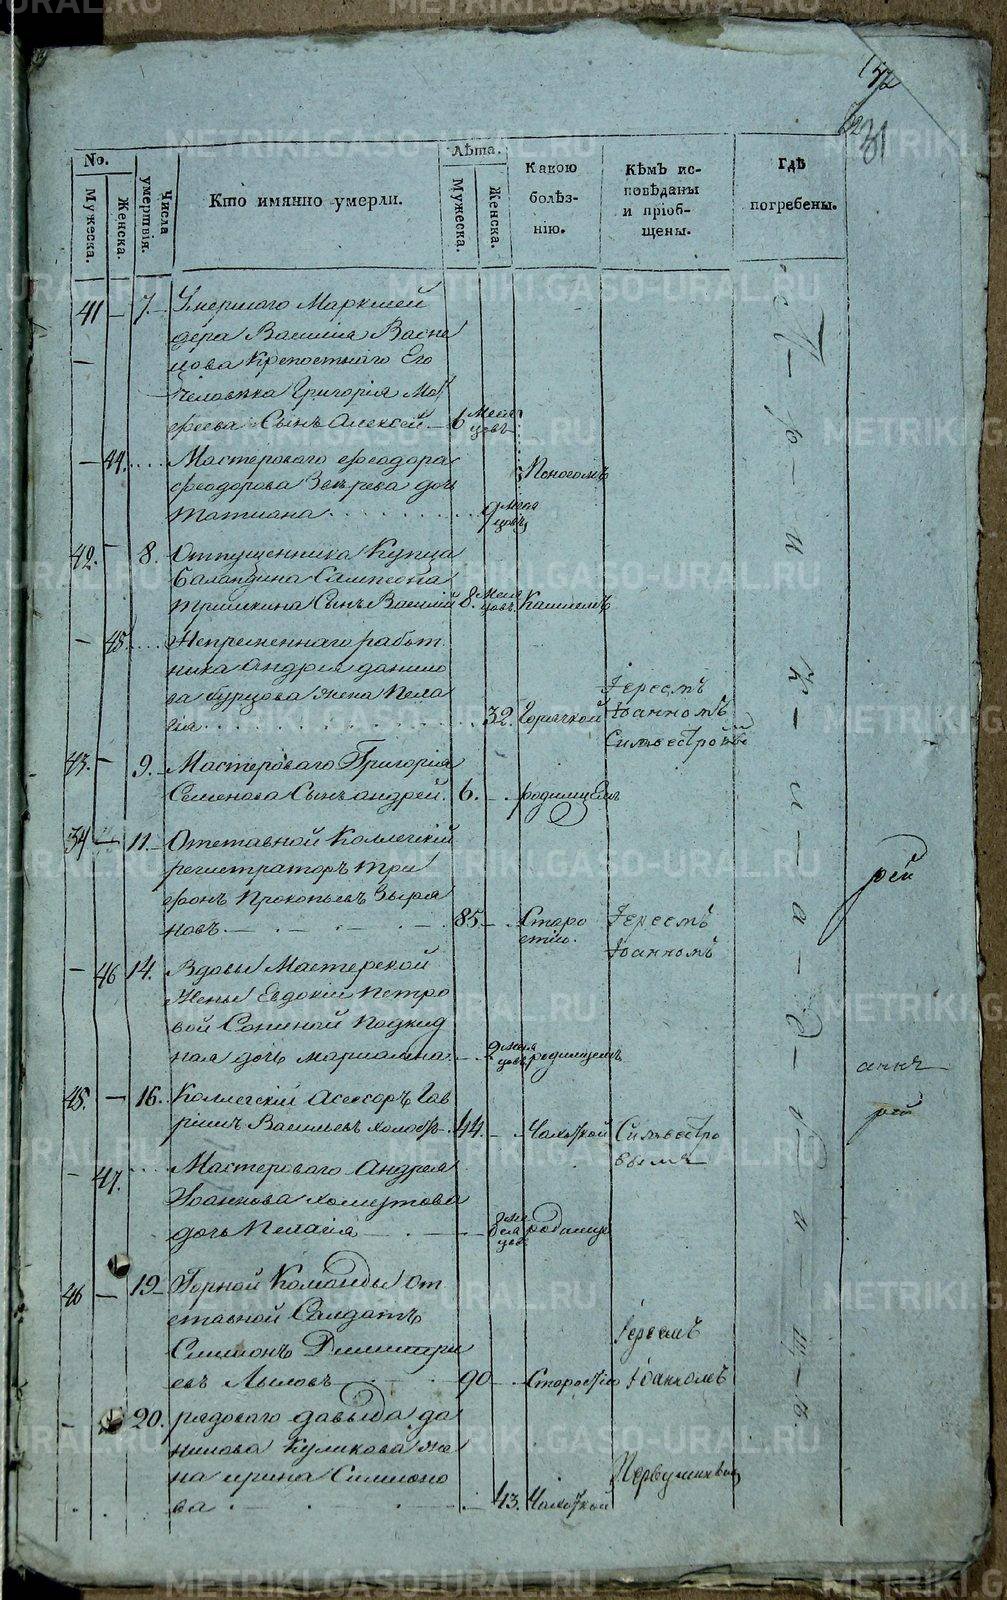 152
31
No.
Мужеска.
Женска.
Числа умертвія.
Кто имянно умерли.
Лѣта.
Мужеска.
Женска.
Какою
болѣз-
нію.
Кѣмъ ис-
повѣданы
и пріоб-
щены.
Гдѣ
погребены.
41 — 7. Умершаго Маркшей
дера Василія Васне
цова Крепостнаго Его
Человѣка Григорія Мо
феева Сынъ Алексей — 6 Меся
цовъ
— 44. Мастероваго Феодора
Феодорова Звѣрева дочь
Татиана 9 меся
цовъ Поносомъ
42. — 8. Отпущенника Купца
Баландина Сампсона
Тришкина Сынъ Василій 8. Меся
цовъ. Кашлемъ
— 45. Непременнаго работ
ника Андрея данило
ва Бурцова жена Пела
гія 32. Горячкой
Іереемъ
Іоанномъ
Сильвестровы
43. — 9. Мастероваго Григорія
Семенова Сынъ андрей. 6. — родимцемъ
34 — 11. Отставной Коллегскій
регистраторъ Три
фонъ Прокопьевъ Зыря
новъ 85 — Старо
стію.
Іереемъ
Іоанномъ
— 46 14. Вдовы Мастерской
Жены Евдокіи Петро
вой Сониной Подкид
ная дочь Мариамна 2 меся
цовъ родимцемъ
45. — 16. Коллегскій Асессоръ Гав
ріилъ Васильевъ 44. — Чахоткой
Сильвестро
— 47. Мастероваго Андрея
Іоаннова
дочь Пелагія 8 ме
сяцовъ родимце
46 — 19 Горной Команды от
ставной Салдатъ
Симионъ Димитри
евъ Лыловъ 90 — Старостію
Іереемъ
Іоанномъ
— 20. рядоваго давыда да
нилова Куликова же
на ирина Симионо
ва 43. Чахоткой
METRIKI.GASO-URAL.RU